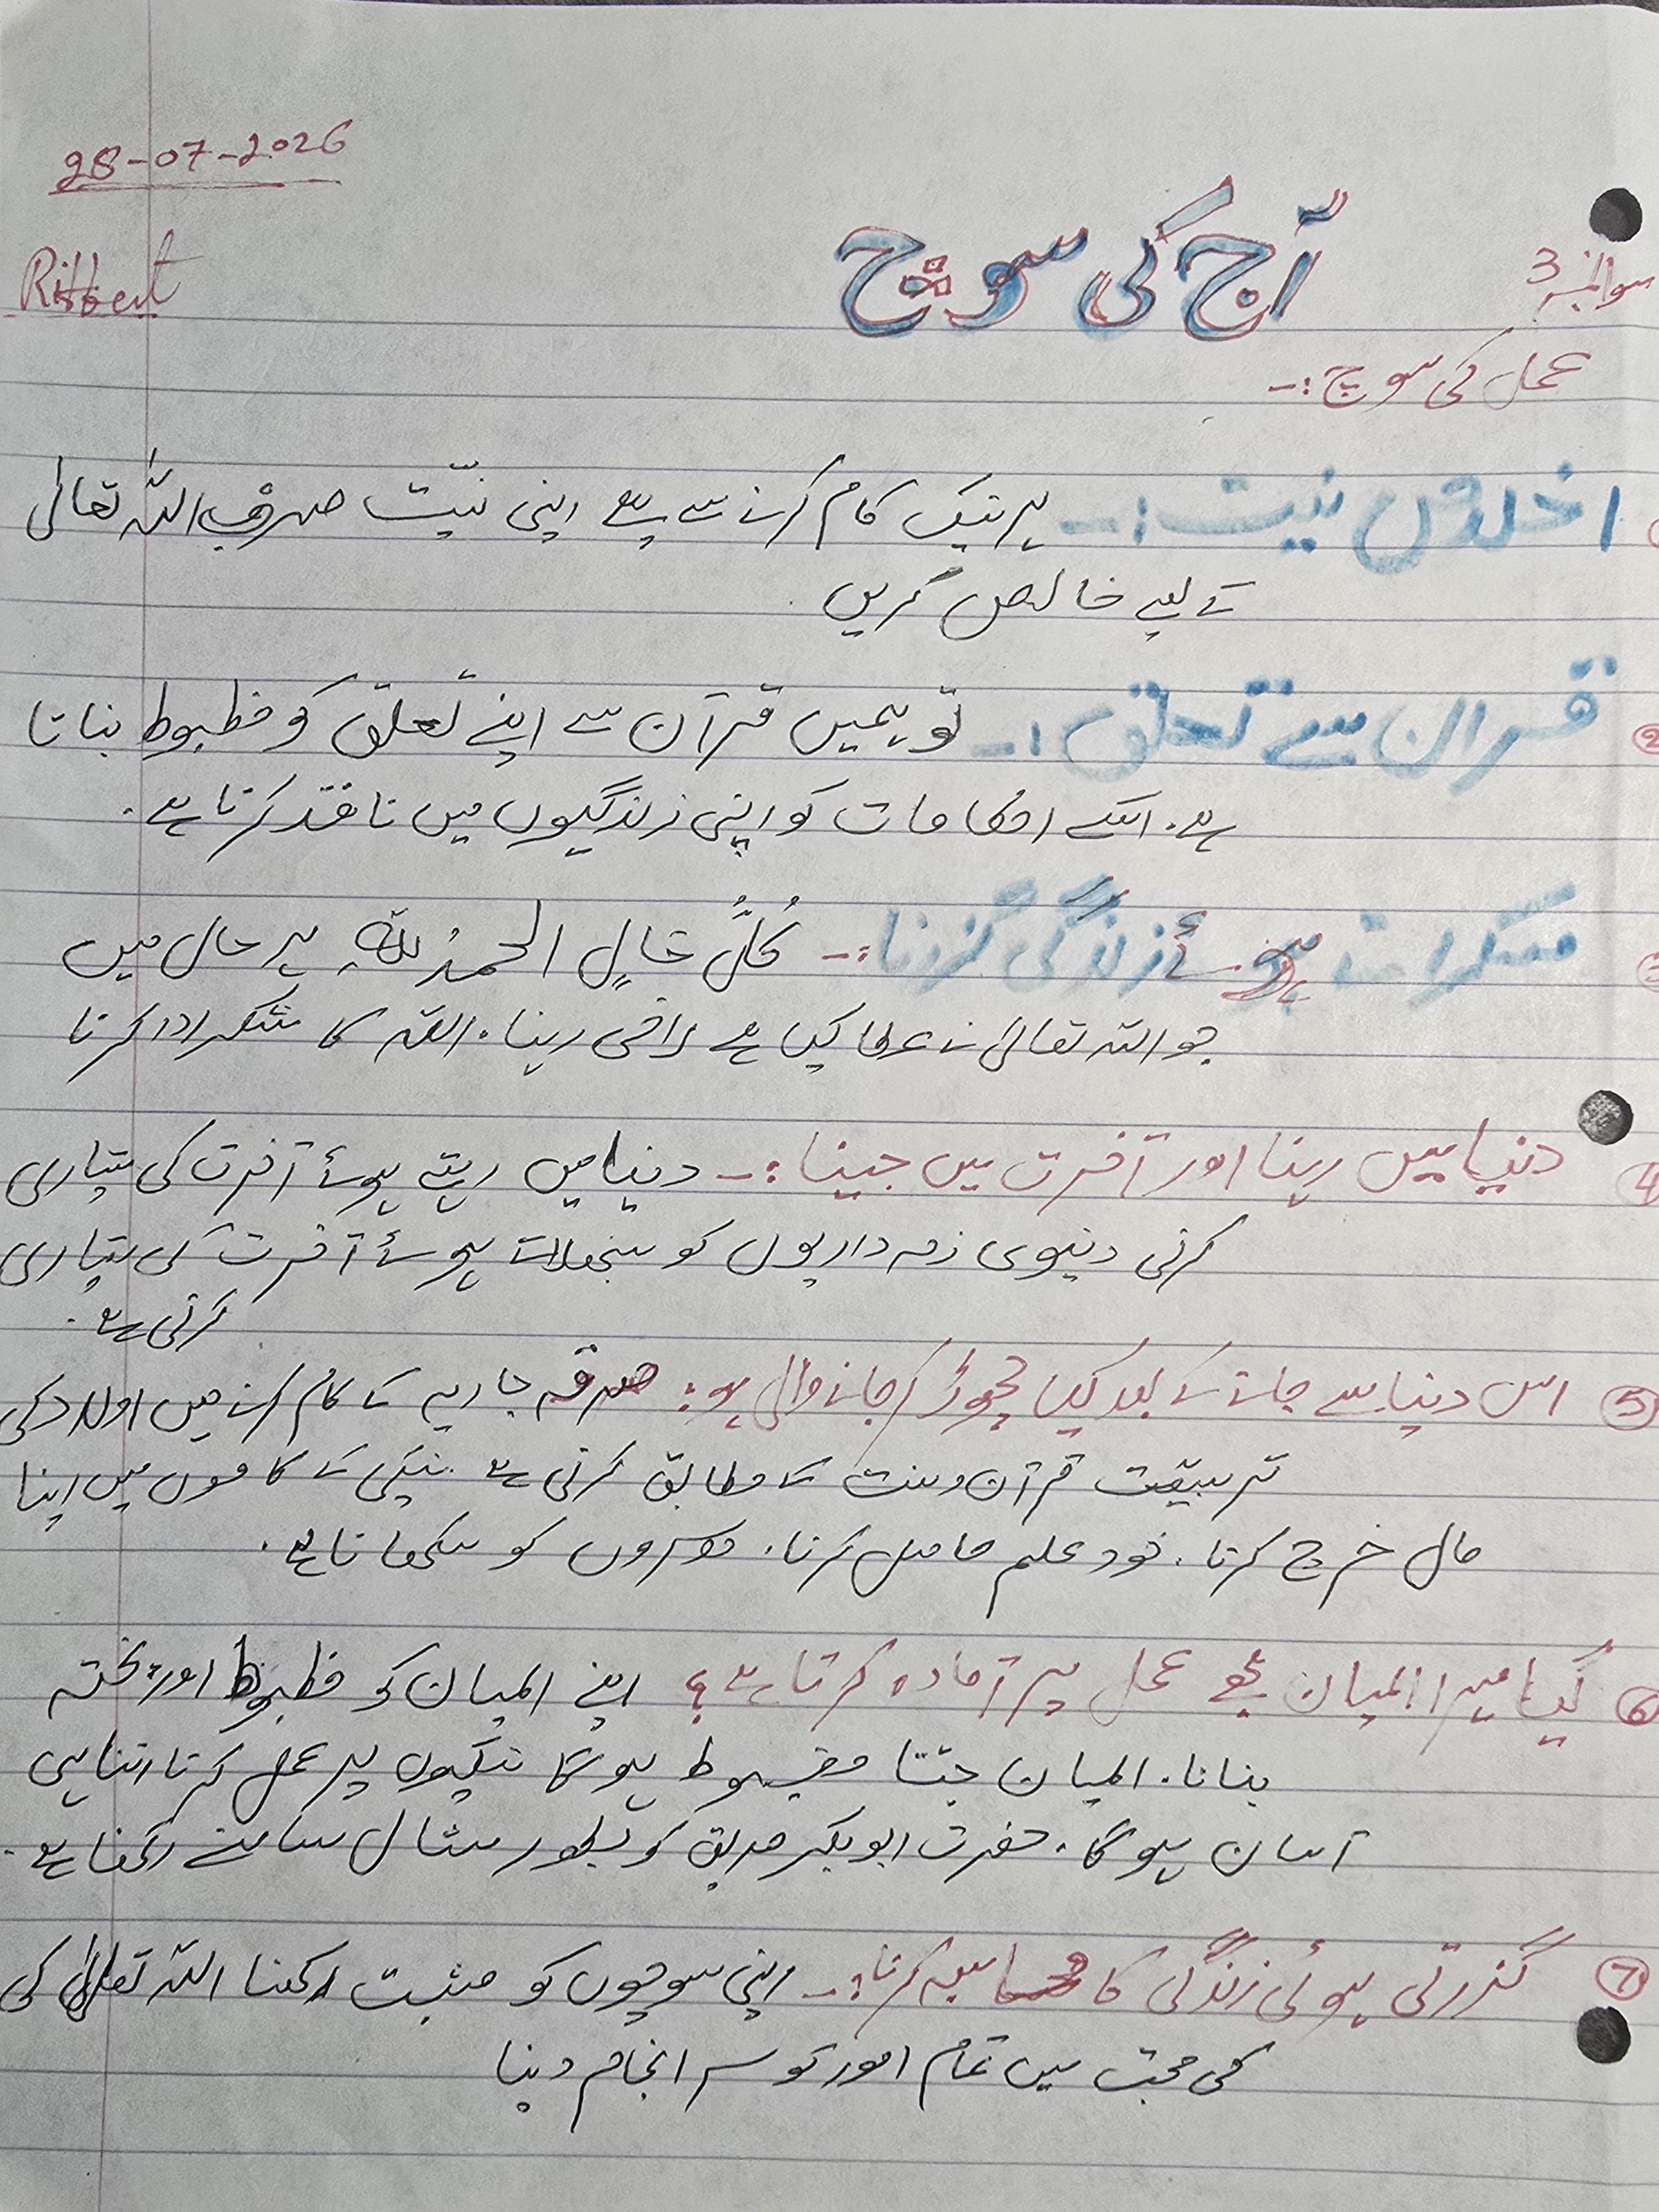 28-07-2026
سوال نمبر 3
آج کی سوچ
عمل کی سوچ :-
اخلاص نیت :- ہر نیک کام کرنے سے پہلے اپنی نیّت صرف اللہ تعالی
کے لیے خالص کریں
② قران سے تعلق :- تو ہمیں قرآن سے اپنے تعلق کو مظبوط بناتا
ہے. اسکے احکامات کو اپنی زندگیوں میں نافذ کرتا ہے.
مسکراتے ہوئے زندگی گزرنا :- کُلُّ حَالٍ الحمدُ للّٰہِ ہر حال میں
جو اللہ تعالی نے عطا کیا ہے راضی رہنا. اللہ کا شکر ادا کرنا
④ دنیا میں رہنا اور آخرت میں جینا :- دنیا میں رہتے ہوئے آخرت کی تیاری
کرنی دنیوی زمہ داریوں کو سنبھلاتے ہوئے آخرت کی تیاری
کرنی ہے.
⑤ اس دنیا سے جانے کے بعد کیا چھوڑ کر جانے والی ہو: صدقہ جاریہ کے کام کرنے میں اولاد کی
تربیت قرآن و سنت کے مطابق کرنی ہے نیکی کے کاموں میں اپنا
مال خرچ کرنا. خود علم حاصل کرنا. دوسروں کو سکھانا ہے.
⑥ کیا میرا ایمان مجھے عمل پر آمادہ کرتا ہے؟ اپنے ایمان کو مظبوط اور پختہ
بنانا. ایمان جتنا مضبوط ہوگا نیکیوں پر عمل کرنا اتنا ہی
آسان ہوگا. حضرت ابوبکر صدیق کو بطور مثال سامنے رکھنا ہے.
⑦ گزرتی ہوئی زندگی کا محاسبہ کرنا :- اپنی سوچوں کو مثبت رکھنا اللہ تعالیٰ کی
کی محبت میں تمام امور کو سر انجام دینا